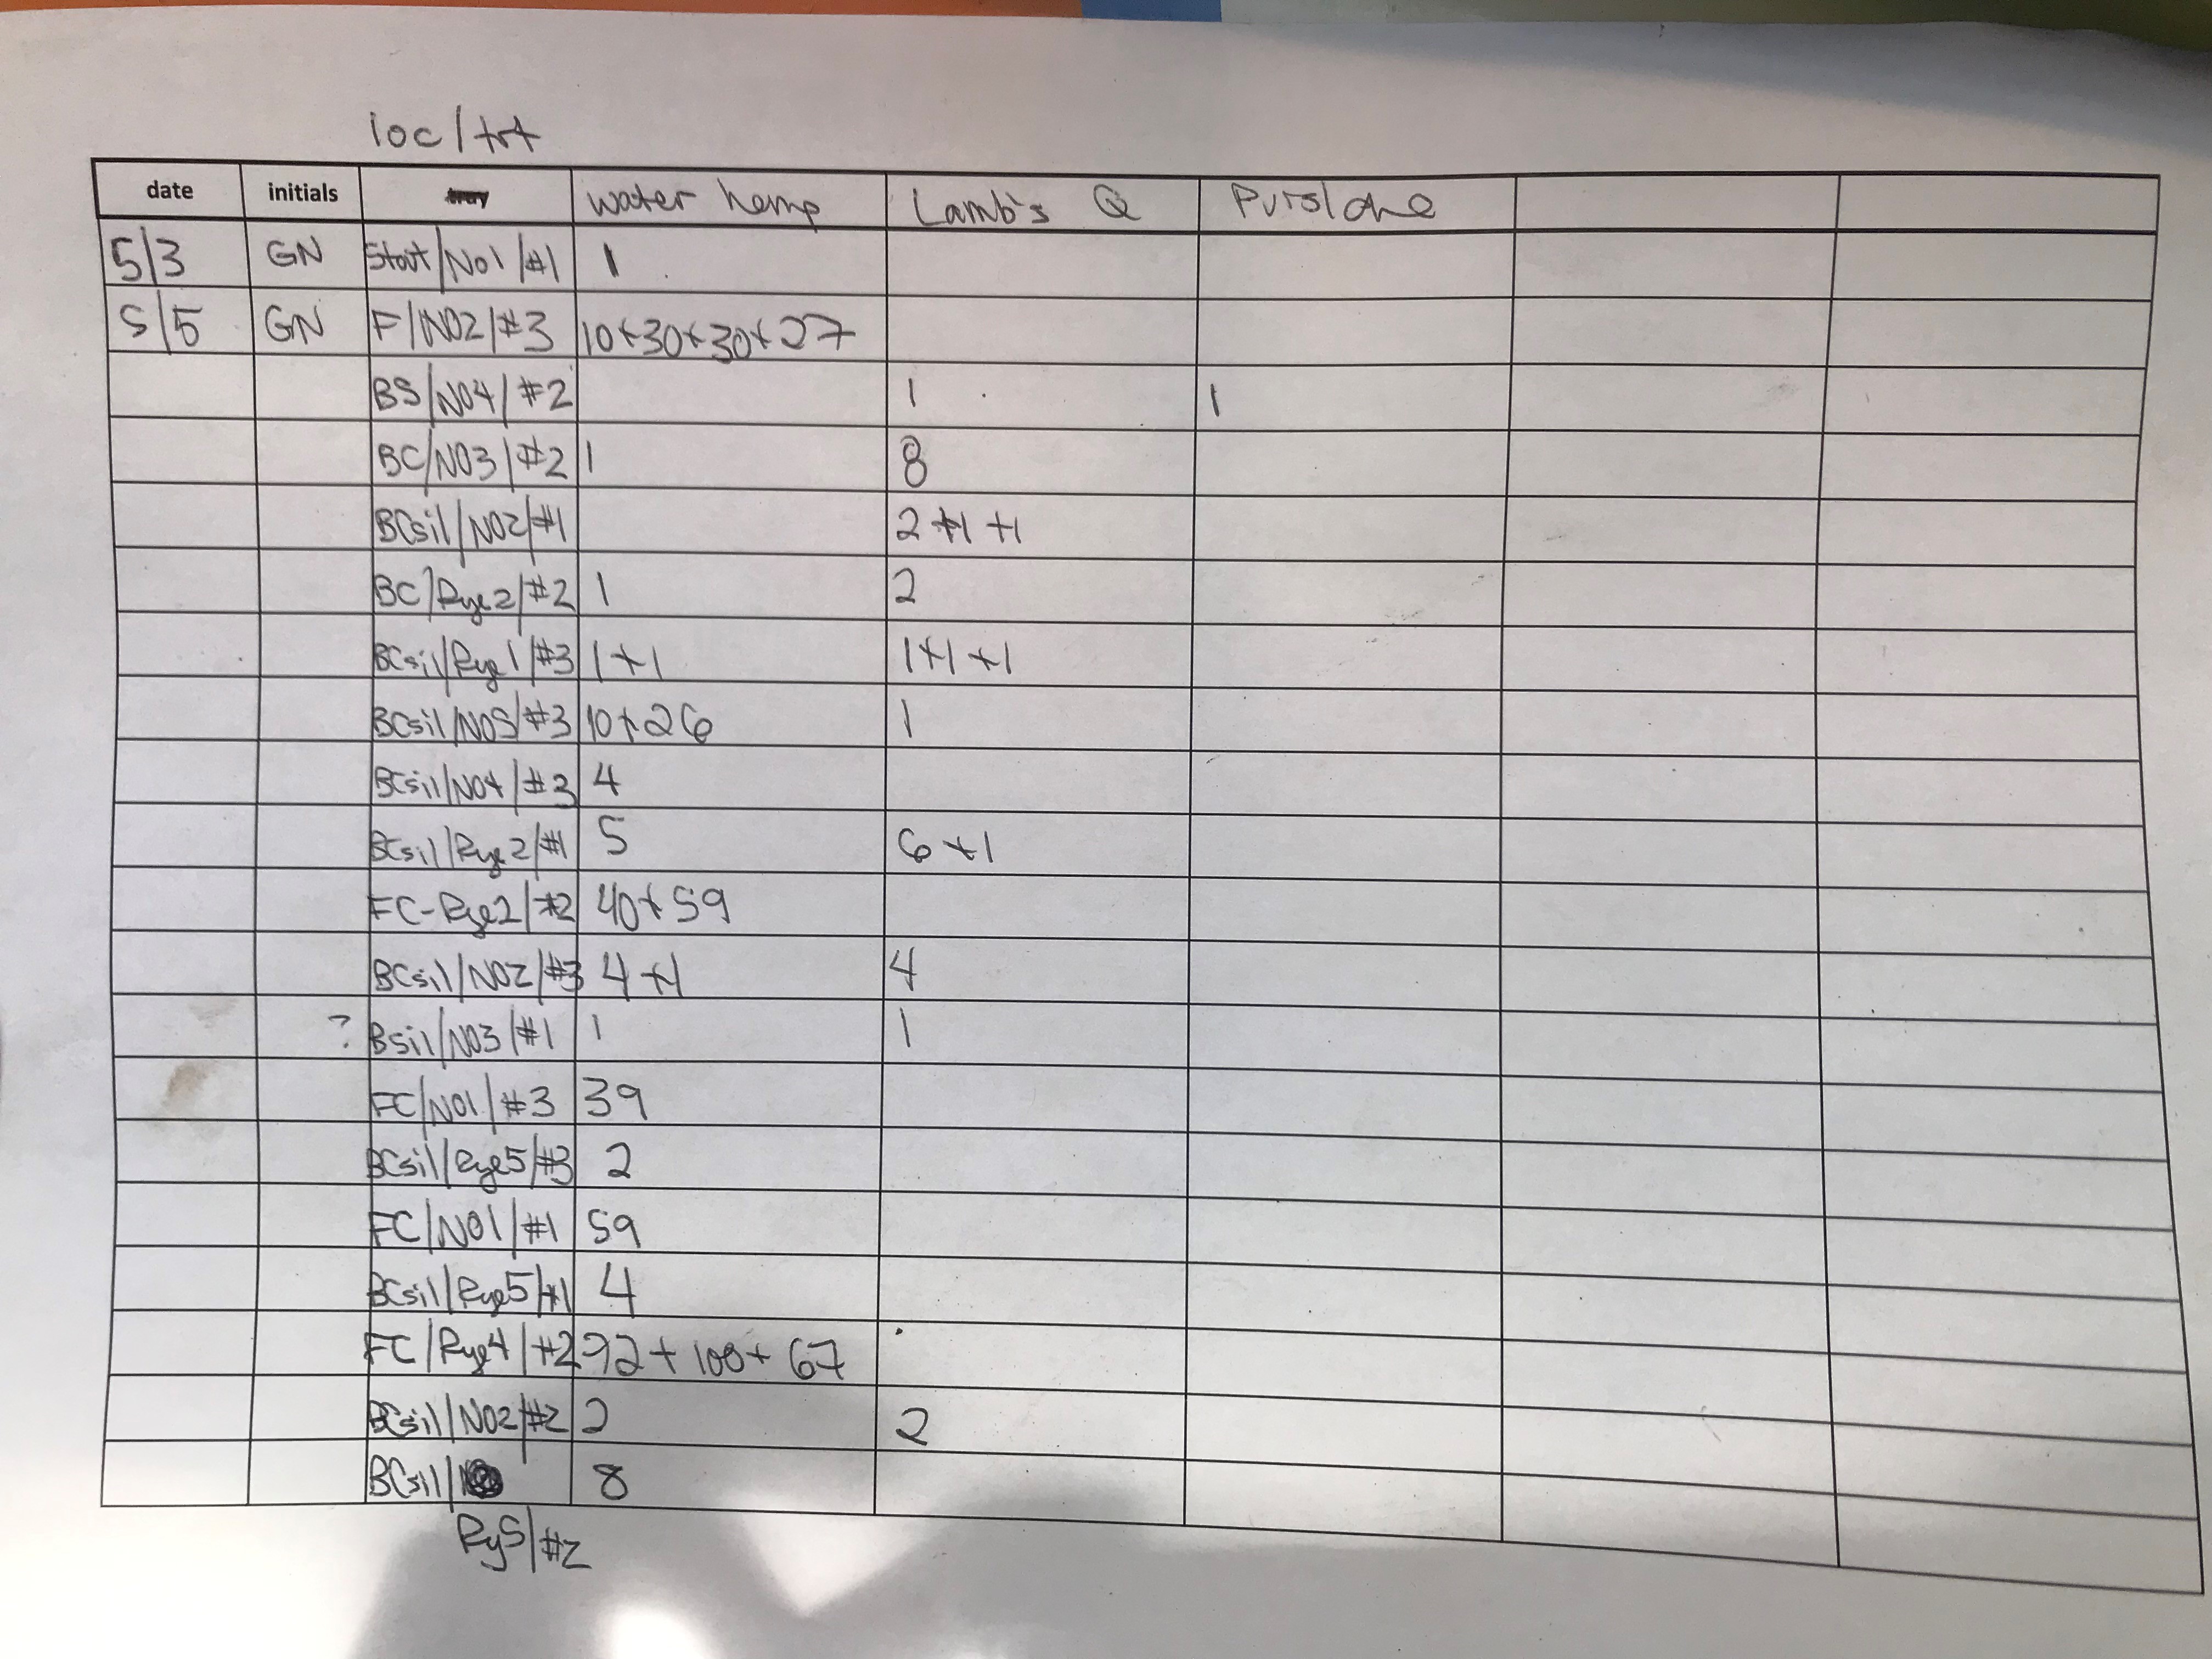 loc/trt
date initials water hemp Lamb's Q Purslane
5/3 GN /No1/#1 1
5/5 GN F/NO2/#3 10+30+30+27
BS/NO4/#2 1 1
BC/NO3/#2 1 8
BCsil/NO2/#1 2+1+1
BC/Rye2/#2 1 2
BCsil/Rye1/#3 1+1 1+1+1
BCsil/NO5/#3 10+26 1
BCsil/NO4/#3 4
BCsil/Rye2/#1 5 6+1
FC-Rye2/#2 40+59
BCsil/NO2/#3 4+1 4
? Bsil/NO3/#1 1 1
FC/NO1/#3 39
BCsil/Rye5/#3 2
FC/NO1/#1 59
BCsil/Rye5/#1 4
FC/Rye4/#2 92+100+67
BCsil/NO2/#2 2 2
BCsil/ 8
Ry5/#2